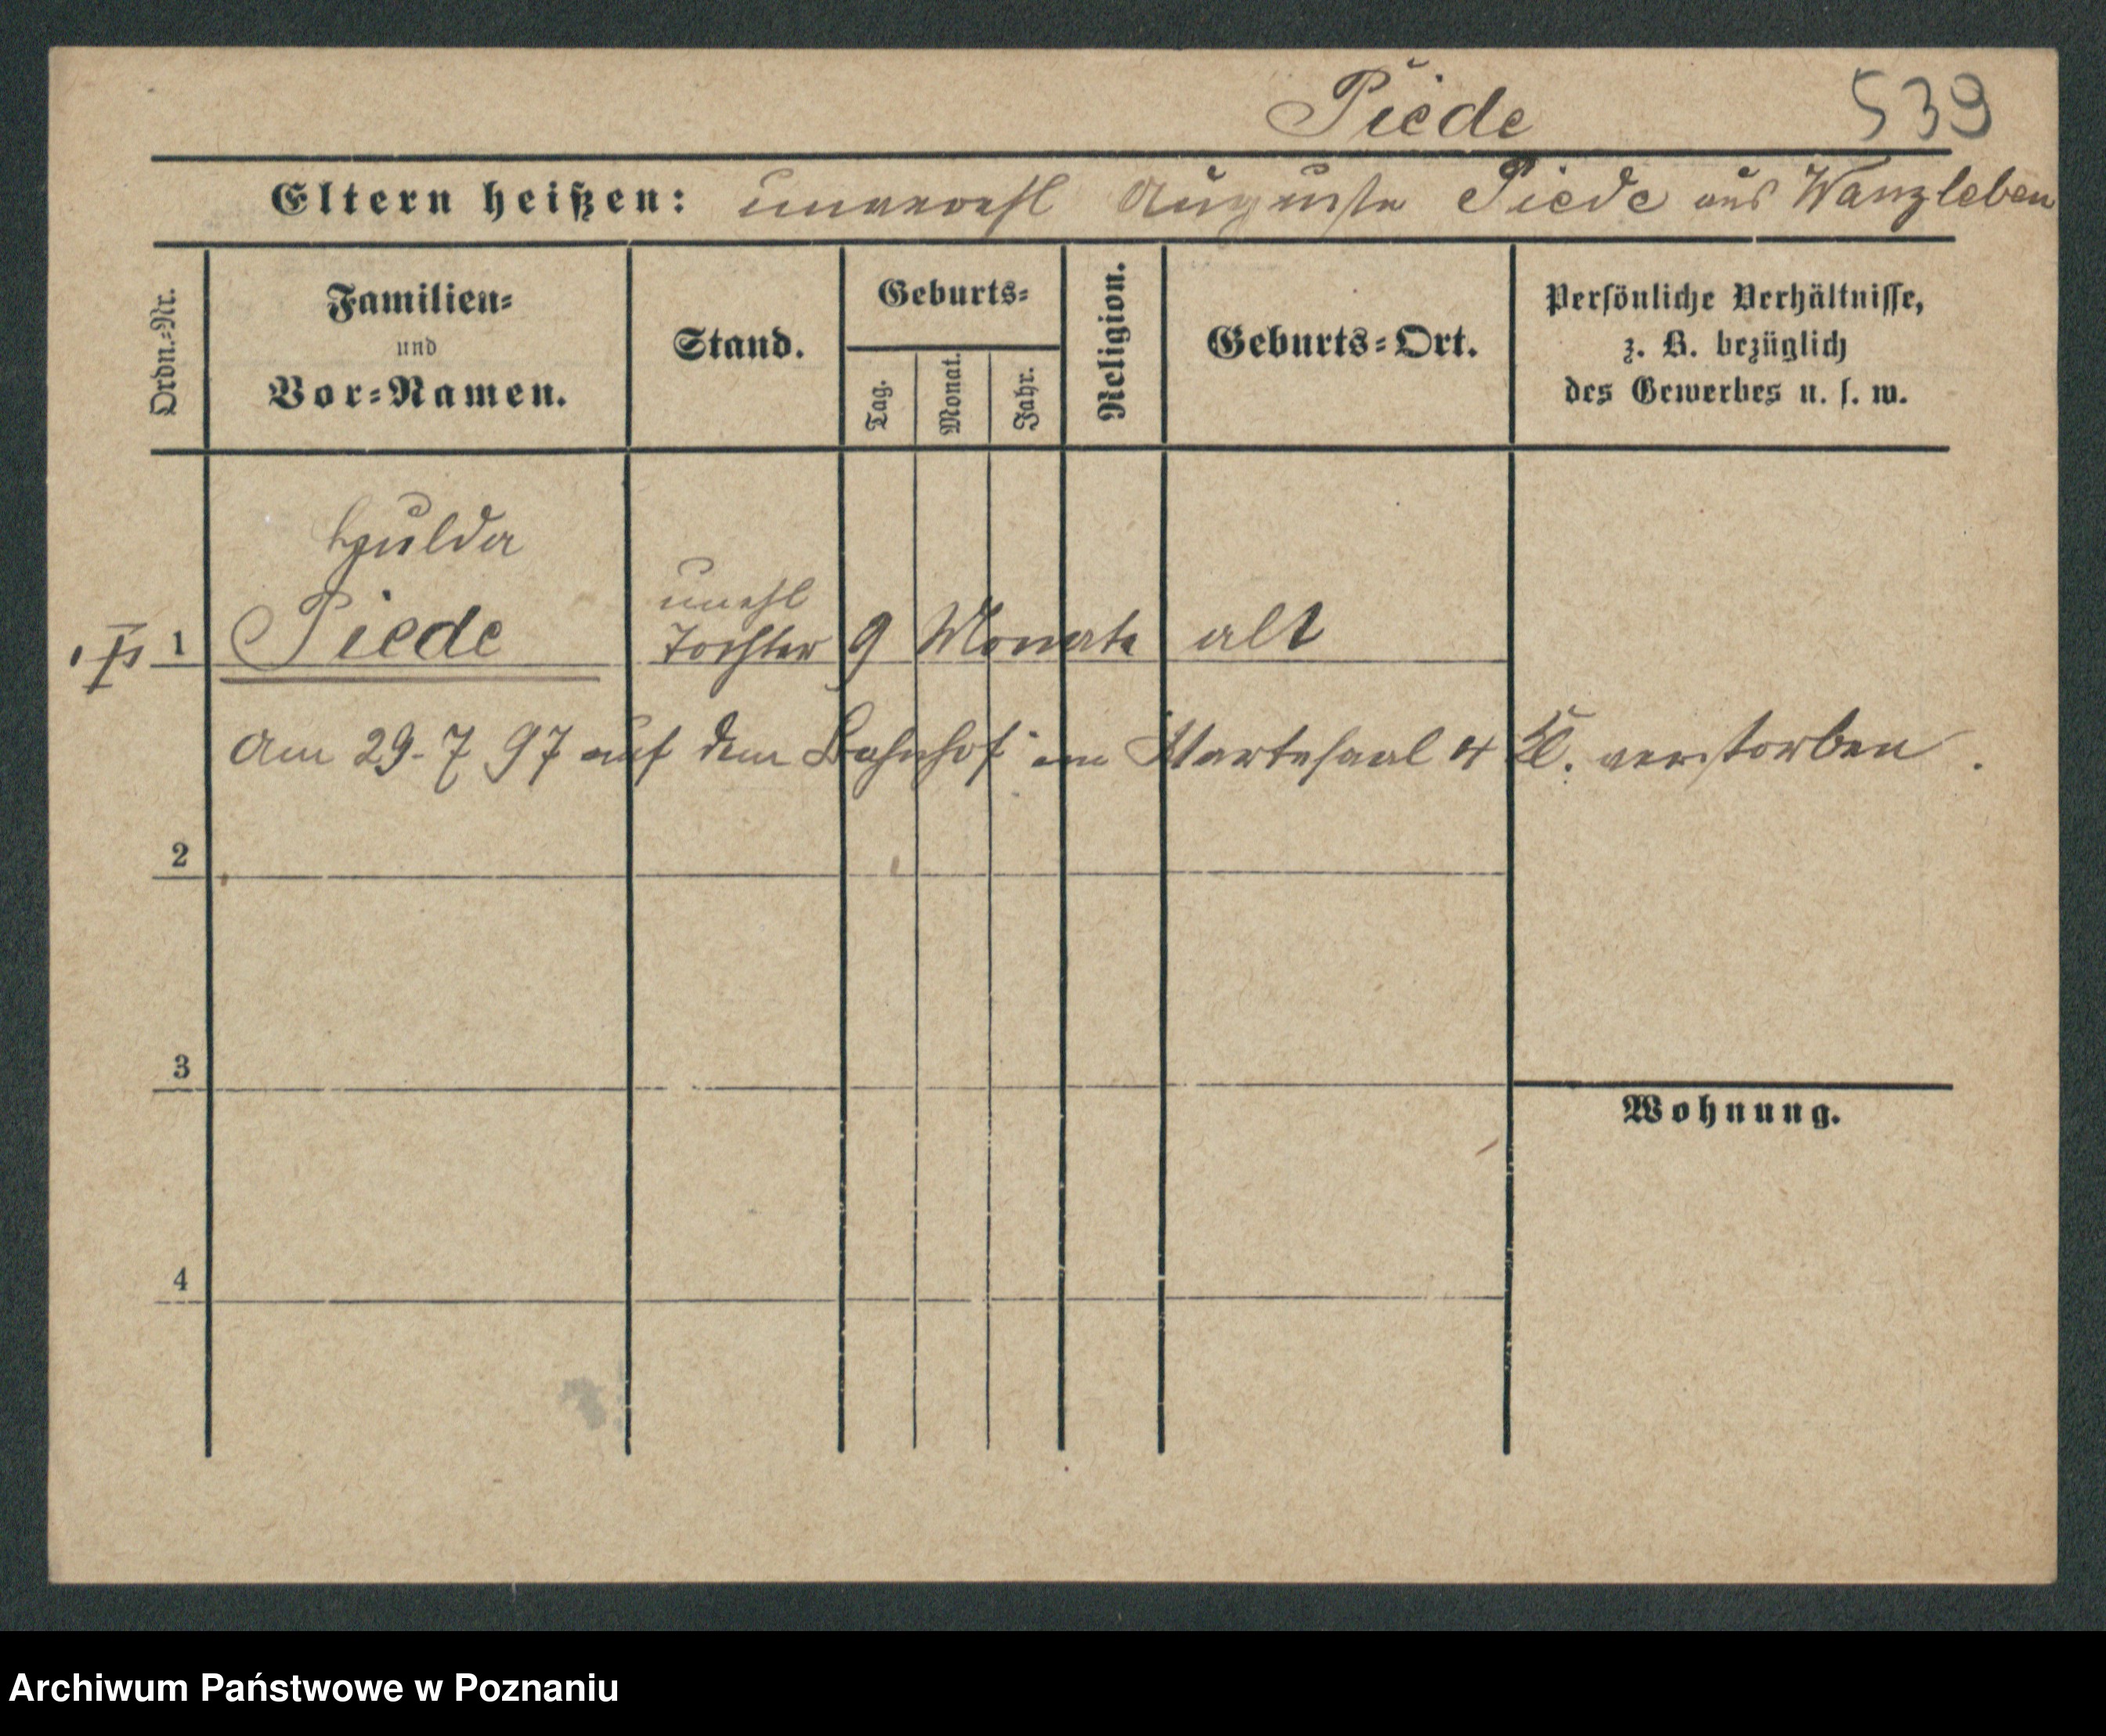 Piede 539
Eltern heißen: unverehl Auguste Piede aus Wanzleben
Ordn.-Nr.
Familien-
und
Vor-Namen.
Stand.
Geburts-
Tag.
Monat.
Jahr.
Religion.
Geburts-Ort.
Persönliche Verhältnisse,
z. B. bezüglich
des Gewerbes u. s. w.
Hulda
unehl
1 Piede Tochter 9 Monate alt
Am 29-7 97 auf dem Bahnhof im Wartesaal 4 Kl. verstorben.
2
3
Wohnung.
4
Archiwum Państwowe w Poznaniu